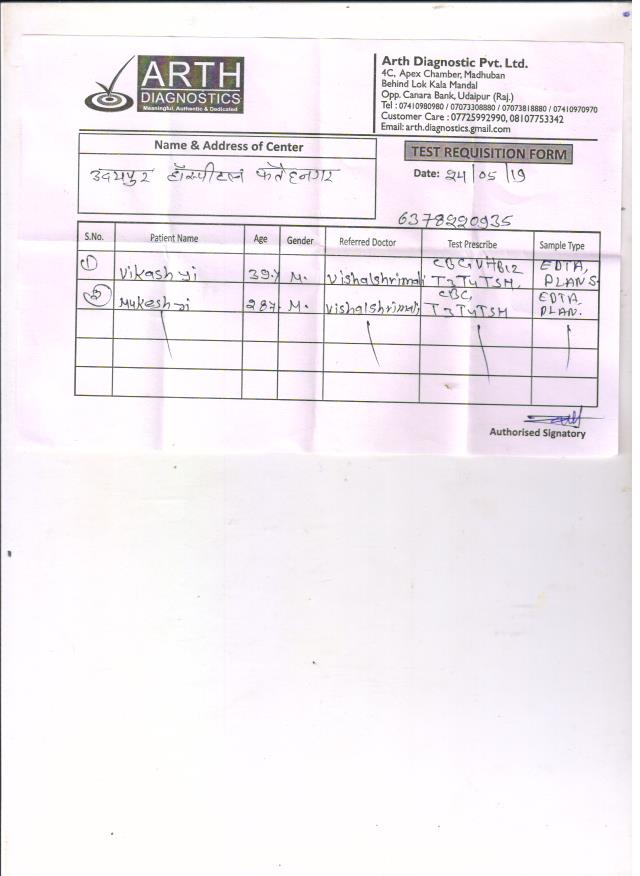 ARTH
DIAGNOSTICS
Meaningful, Authentic & Dedicated
Arth Diagnostic Pvt. Ltd.
4C, Apex Chamber, Madhuban
Behind Lok Kala Mandal
Opp. Canara Bank, Udaipur (Raj.)
Tel : 07410980980 / 07073308880 / 07073818880 / 07410970970
Customer Care : 07725992990, 08107753342
Email: arth.diagnostics.gmail.com
Name & Address of Center
TEST REQUISITION FORM
उदयपुर हॉस्पीटल फतेहनगर
Date: 24/05/19
6378220935
S.No. Patient Name Age Gender Referred Doctor Test Prescribe Sample Type
① Vikash ji 39 M. Vishalshrimali CBC, VitB12 T3T4TSH, EDTA, PLANS
② Mukesh ji 28 M. Vishalshrimali CBC, T3T4TSH EDTA PLAN.
Authorised Signatory